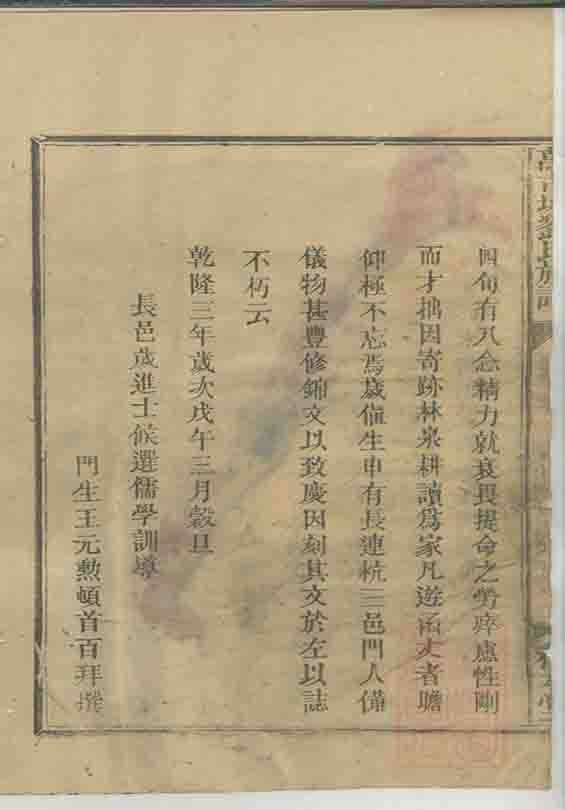 四旬有八念精力就衰畏提命之勞瘁慮性剛
而才拙因寄跡林泉耕讀爲家凡遊函丈者瞻
仰極不忘焉歲値生申有長連杭三邑門人備
儀物甚豐修錦文以致慶因刻其文於左以誌
不朽云
乾隆三年歲次戊午三月穀旦
長邑歲進士候選儒學訓導
門生王元勲頓首百拜撰